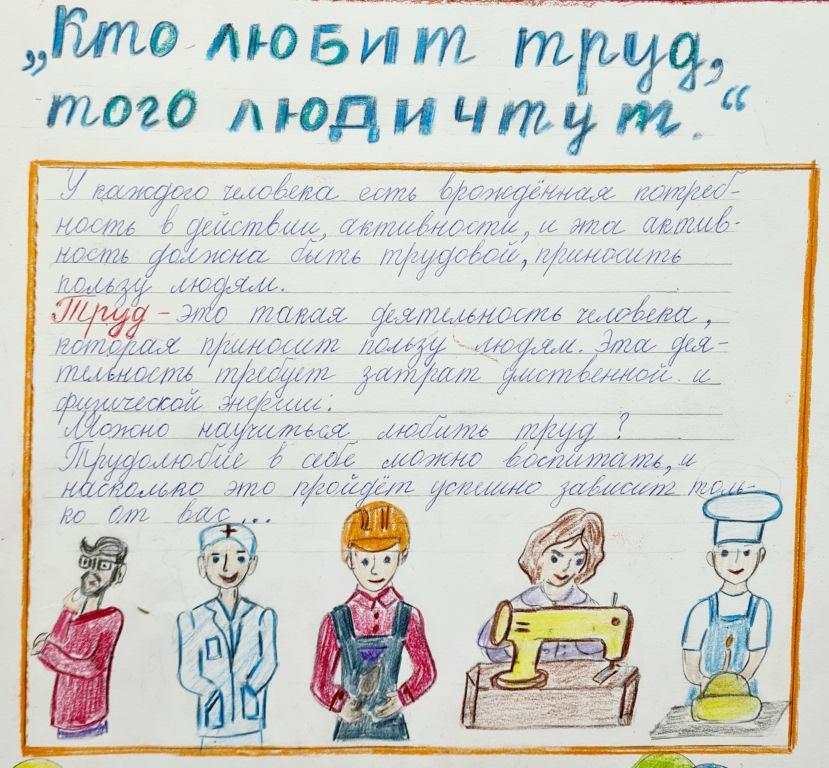 „Кто любит труд,
того люди чтут."
У каждого человека есть врождённая потреб-
ность в действии, активности, и эта актив-
ность должна быть трудовой, приносить
пользу людям.
Труд - это такая деятельность человека,
которая приносит пользу людям. Эта дея-
тельность требует затрат умственной и
физической энергии.
Можно научиться любить труд?
Трудолюбие в себе можно воспитать, и
насколько это пройдёт успешно зависит толь-
ко от вас...